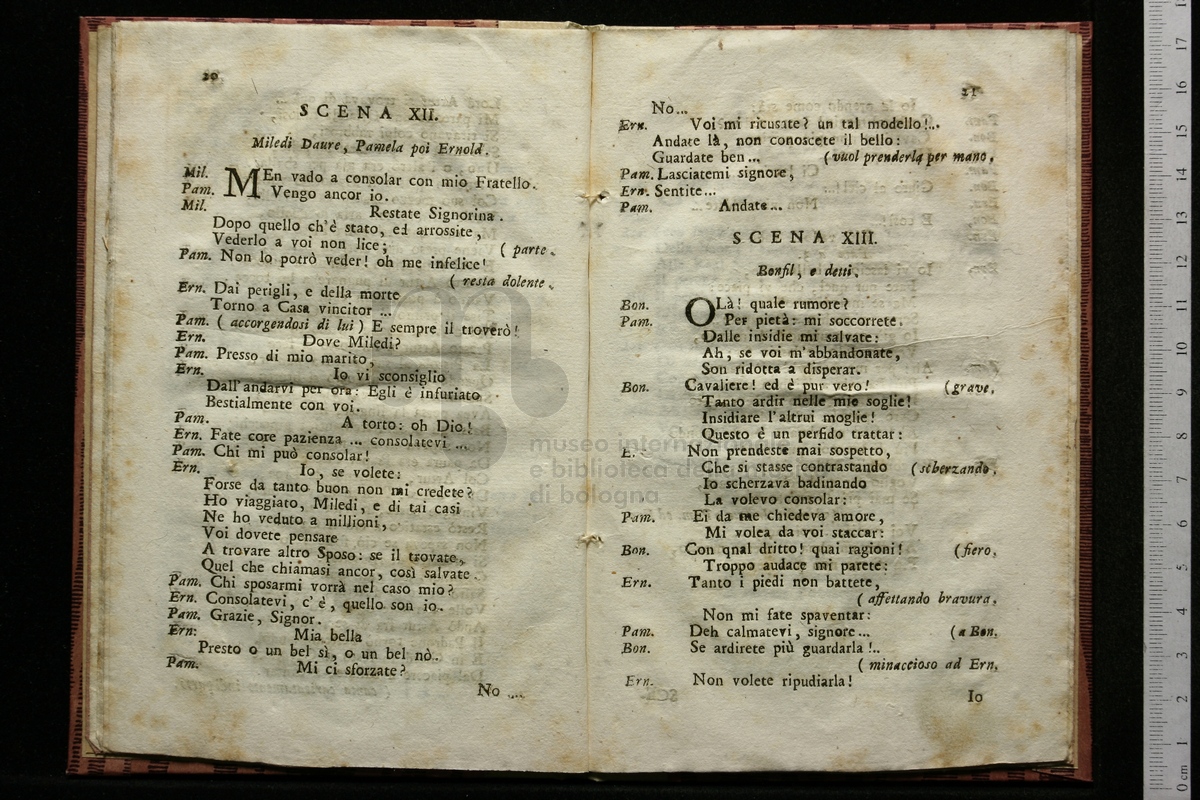 20
SCENA XII.
Miledi Daure, Pamela poi Ernold.
Mil. MEn vado a consolar con mio Fratello.
Pam. Vengo ancor io.
Mil. Restate Signorina.
Dopo quello ch'è stato, ed arrossite,
Vederlo a voi non lice; ( parte.
Pam. Non lo potrò veder! oh me infelice!
( resta dolente.
Ern. Dai perigli, e della morte
Torno a Casa vincitor ...
Pam. ( accorgendosi di lui ) E sempre il troverò!
Ern. Dove Miledi?
Pam. Presso di mio marito,
Ern. Io vi sconsiglio
Dall'andarvi per ora: Egli è infuriato
Bestialmente con voi.
Pam. A torto: oh Dio!
Ern. Fate core pazienza ... consolatevi ...
Pam. Chi mi può consolar!
Ern. Io, se volete:
Forse da tanto buon non mi credete?
Ho viaggiato, Miledi, e di tai casi
Ne ho veduto a millioni,
Voi dovete pensare
A trovare altro Sposo: se il trovate,
Quel che chiamasi ancor, così salvate.
Pam. Chi sposarmi vorrà nel caso mio?
Ern. Consolatevi, c'è, quello son io.
Pam. Grazie, Signor.
Ern: Mia bella
Presto o un bel sì, o un bel nò..
Pam. Mi ci sforzate?
No ....
21
No...
Ern. Voi mi ricusate? un tal modello!...
Andate là, non conoscete il bello:
Guardate ben ... (vuol prenderla per mano.
Pam. Lasciatemi signore,
Ern. Sentite...
Pam. Andate...
SCENA XIII.
Bonfil, e detti.
Bon. OLà! quale rumore?
Pam. Per pietà: mi soccorrete.
Dalle insidie mi salvate:
Ah, se voi m'abbandonate,
Son ridotta a disperar.
Bon. Cavaliere! ed è pur vero! (grave.
Tanto ardir nelle mie soglie!
Insidiare l'altrui moglie!
Questo è un perfido trattar:
E. Non prendeste mai sospetto,
Che si stasse contrastando (scherzando.
Io scherzava badinando
La volevo consolar:
Pam. Ei da me chiedeva amore,
Mi volea da voi staccar:
Bon. Con qnal dritto! quai ragioni! (fiero.
Troppo audace mi parete:
Ern. Tanto i piedi non battete,
( affettando bravura.
Non mi fate spaventar:
Pam. Deh calmatevi, signore... (a Bon.
Bon. Se ardirete più guardarla!..
( minaccioso ad Ern.
Ern. Non volete ripudiarla!
Io
museo internazionale
e biblioteca della
di bologna
0 cm 1 2 3 4 5 6 7 8 9 10 11 12 13 14 15 16 17